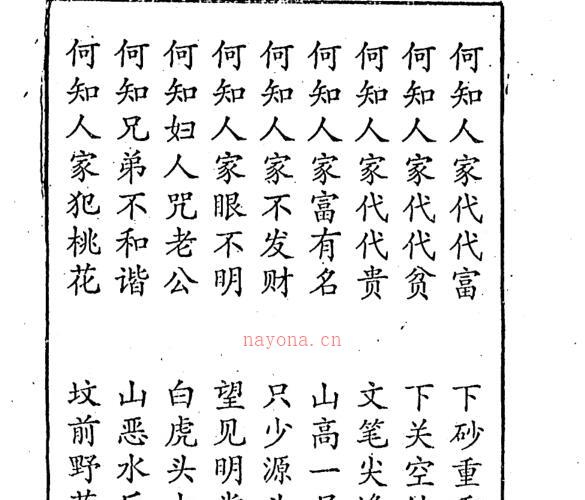 何知人家代代富
下砂重
何知人家代代贫
下关空
何知人家代代贵
文笔尖
何知人家富有名
山高一
何知人家不发财
只少源
何知人家眼不明
望见明
何知妇人咒老公
白虎头
何知兄弟不和谐
山恶水
何知人家犯桃花
坟前野
nayona.cn